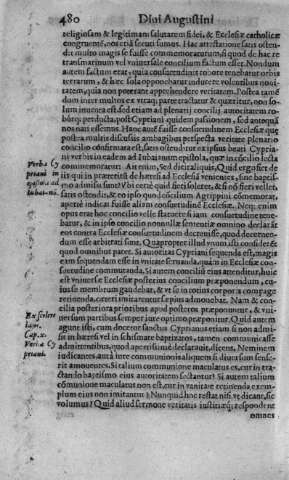 480 Diui Augustini
religiosam & legitimam salutarem fidei, & Ecclesiæ catholicæ
congruente, nostris securi sumus. Hac attestatione satis osten-
dit, multo magis se fuisse commemoraturum, si quod de hac re
transmarinum vel vniuersale concilium factum esset. Nondum
autem factum erat, quia consuetudinis robore tenebatur orbis
terrarum, & hæc sola opponebatur inducere volentibus noui-
tatem, quia non poterant apprehendere veritatem. Postea tamé
dum inter multos ex vtraq; parte tractatur & quæritur, non so-
lum inuenta est, sed etiam ad plenarij concilij autoritatem ro-
burq; perducta, post Cypriani quidem passionem, sed antequã
nos nati essemus. Hanc autẽ fuisse consuetudinem Ecclesiæ quę
postea multis discussis ambagibus perspecta veritate plenario
concilio confirmata est, satis ostenditur ex ipsius beati Cypria
ni verbis in eadem ad Iubaianum epistola, quæ in concilio lecta
commemoratur. Ait enim, Sed dicit aliquis, Quid ergo fiet de
iis qui in præteritū de hæresi ad Ecclesiā venientes, sine baptis-
mo admissi sunt? Vbi certe quid fieri soleret, & si nõ fieri vellet,
satis ostendit, & eo ipso quod concilium Agrippini commemorat,
aperte indicat fuisse aliam consuetudinem Ecclesiæ. Neq; enim
opus erat hoc concilio velle statuere si iam consuetudine tene-
batur, & in ipso concilio nonnullæ sententiæ omnino declarāt
eos contra Ecclesiæ consuetudinem decreuisse, quod decernen-
dum esse arbitrati sunt. Quapropter illud vnum, isti considerēt
quod omnibus patet. Si autoritas Cypriani sequenda est, magis
eam sequendam esse in vnitate seruanda, quàm in Ecclesiæ con-
suetudine commutanda. Si autem concilij eius attenditur, huic
est vniuersæ Ecclesiæ posterius concilium præponendum, cu-
ius se membrum gaudebat, & vt se in totius corporis compage
retinenda, cæteri imitarentur sæpius admonebat. Nam & con-
cilia posteriora prioribus apud posteros præponuntur, & vni-
uersum partibus semper iure optimo præponitur. Quid autem
agunt isti, cum docetur sanctus Cyprianus etiam si non admi-
sit in hæresi vel in schismate baptizatos, tamen communicasse
admittentibus, quod apertissimè declarauit, dicens, Neminem
iudicantes, aut à iure communionis aliquem si diuersum sense-
rit amouentes. Si talium communione maculatus est, cur in tra-
ctando baptismo eius autoritatem sectantur? Si autem talium
cõmunione maculatus non est, cur in vnitate retinenda exem-
plum eius non imitantur? Nunquid hoc restat nisi vt dicant, sic
volumus? Quid aliud sermone veritatis iustitiæq; respondent
omnes
Verba Cy
priani in
epistola ad
Iubaianū.
Ex eodem
Cap. x.
Verba Cy
priani.